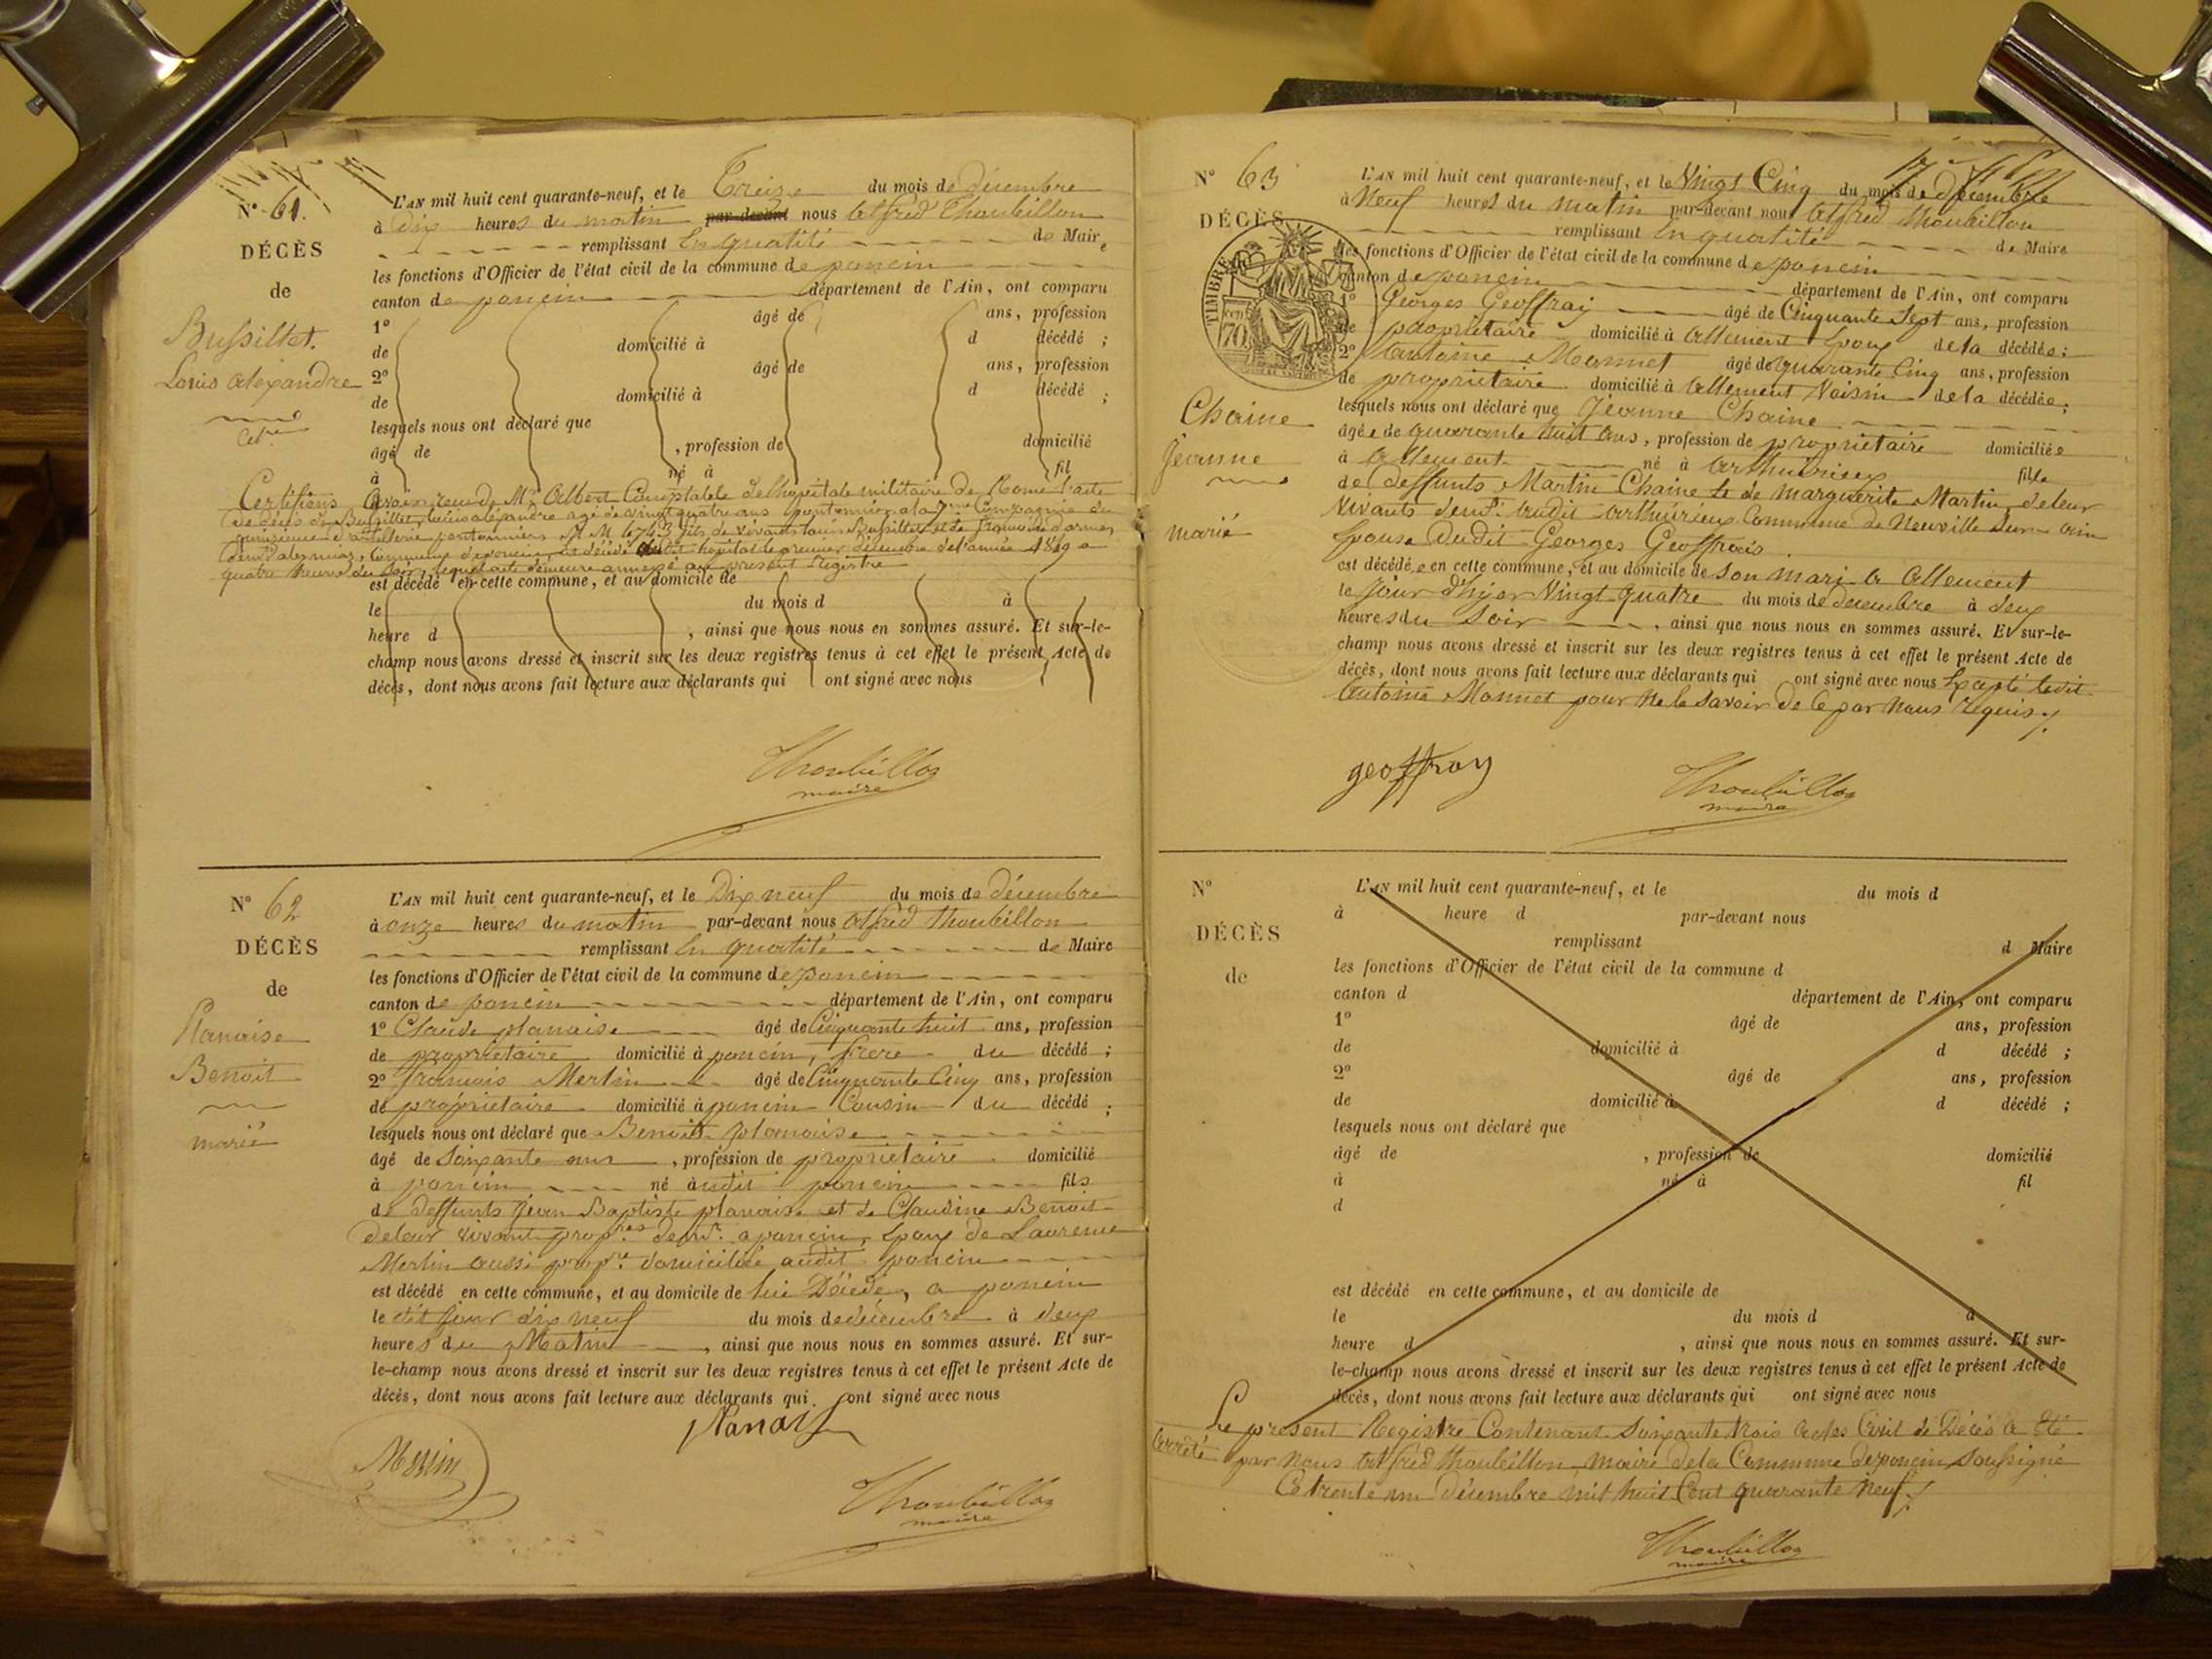 N° 61.
DÉCÈS
de
Bussillet.
Louis alexandre
Cel.re
L'AN mil huit cent quarante-neuf, et le Treize du mois de décembre
à dix heures du matin par-devant nous Alfred Thoubillon
remplissant En qualité de Maire
les fonctions d'Officier de l'état civil de la commune de poncin
canton de poncin département de l'Ain, ont comparu
1° âgé de ans, profession
de domicilié à d décédé ;
2° âgé de ans, profession
de domicilié à d décédé ;
lesquels nous ont déclaré que
âgé de , profession de domicilié
à né à fil
Certifions avoir recu de Mr. Albert Comptable de l'hopital militaire de Rome l'acte
de décés de Bussillet, louis aléxandre agé de vingt quatre ans pontonnier a la Compagnie du
quinzieme d'artillerie pontonniers Nº M 6743 fils de vivants louis Bussillet et de
commune de poncin est décédé audit hopital le premier décembre de l'année 1849 a
quatre heures du soir, lequel acte demeure annexé au present Registre
est décédé en cette commune, et au domicile de
le du mois d à
heure d , ainsi que nous nous en sommes assuré. Et sur-le-
champ nous avons dressé et inscrit sur les deux registres tenus à cet effet le présent Acte de
décès, dont nous avons fait lecture aux déclarants qui ont signé avec nous
Thoubillon
maire
N° 62
DÉCÈS
de
Planaise
Benoit
marié
L'AN mil huit cent quarante-neuf, et le Dix neuf du mois de décembre
à onze heures du matin par-devant nous Alfred thoubillon
remplissant En qualité de Maire
les fonctions d'Officier de l'état civil de la commune de poncin
canton de poncin département de l'Ain, ont comparu
1° Claude planaise âgé de Cinquante huit ans, profession
de propriétaire domicilié à poncin, frere du décédé ;
2° francois Merlin âgé de Cinquante Cinq ans, profession
de propriétaire domicilié à poncin Cousin du décédé ;
lesquels nous ont déclaré que Benoit planaise
âgé de Soixante ans , profession de propriétaire domicilié
à poncin né audit poncin fils
de deffunts Jean Baptiste planaise et de Claudine Benoit
de leur vivant prop.res dem.t a poncin, Epoux de Laurence
Merlin aussi prop.re domiciliée audit poncin
est décédé en cette commune, et au domicile de lui Décédé, a poncin
le dit jour dix neuf du mois de décembre à deux
heures du Matin , ainsi que nous nous en sommes assuré. Et sur-
le-champ nous avons dressé et inscrit sur les deux registres tenus à cet effet le présent Acte de
décès, dont nous avons fait lecture aux déclarants qui ont signé avec nous
Thoubillon
maire
N° 63
DÉCÈS
TIMBRE
70
Chaine
Jeanne
marié
L'AN mil huit cent quarante-neuf, et le Vingt Cinq du mois de Décembre
à Neuf heures du matin par-devant nous Alfred thoubillon
remplissant En qualité de Maire
les fonctions d'Officier de l'état civil de la commune de poncin
canton de poncin département de l'Ain, ont comparu
1° Georges Geoffray âgé de Cinquante Sept ans, profession
de propriétaire domicilié à Allement Epoux de la décédée ;
2° Antoine Monnet âgé de quarante Cinq ans, profession
de propriétaire domicilié à Allement Voisin de la décédée ;
lesquels nous ont déclaré que Jeanne Chaine
âgée de quarante huit ans , profession de propriétaire domiciliée
à Allement né à arthurieux fille
de deffunts Martin Chaine et de marguerite Martin, de leur
Vivants dem.t audit arthurieux Commune de Neuville Sur ain
Epouse dudit Georges Geoffrais.
est décédée en cette commune, et au domicile de son mari a Allement
le jour d'hyer Vingt quatre du mois de decembre à deux
heures du Soir , ainsi que nous nous en sommes assuré. Et sur-le-
champ nous avons dressé et inscrit sur les deux registres tenus à cet effet le présent Acte de
décès, dont nous avons fait lecture aux déclarants qui ont signé avec nous Excepté ledit
Antoine Monnet pour ne le savoir de Ce par nous requis
geoffray
Thoubillon
maire
N°
DÉCÈS
de
L'AN mil huit cent quarante-neuf, et le du mois d
à heure d par-devant nous
remplissant d Maire
les fonctions d'Officier de l'état civil de la commune d
canton d département de l'Ain, ont comparu
1° âgé de ans, profession
de domicilié à d décédé ;
2° âgé de ans, profession
de domicilié à d décédé ;
lesquels nous ont déclaré que
âgé de , profession de domicilié
à né à fil
d
est décédé en cette commune, et au domicile de
le du mois d à
heure d , ainsi que nous nous en sommes assuré. Et sur-
le-champ nous avons dressé et inscrit sur les deux registres tenus à cet effet le présent Acte de
décès, dont nous avons fait lecture aux déclarants qui ont signé avec nous
Le present Registre Contenant Soixante trois actes Civil de Décés a Eté
arrêté par nous Alfred thoubillon maire de la Commune de poncin soussigné
Ce trente un Décembre mil huit Cent quarante neuf
Thoubillon
maire